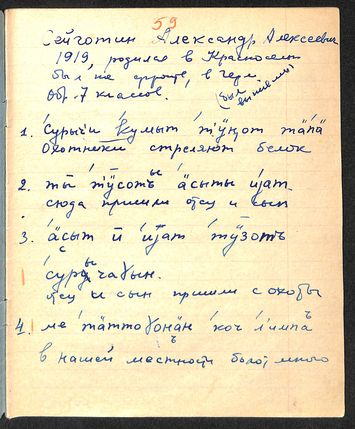 59
Сейготин Александр Алексеевич
1919, родился в Красносельк
был на фронте, в Герм.
Обр. 7 классов. (был
1. 'сурычи 'кумыт 'тӱӈот тӓпӓ
Охотники стреляют белок
2. тӹ 'тӱсоть 'ӓсыты ӣјат
сюда пришли отец и сын
3. 'ӓсыт ӣ ӣјат 'тӱзоть
'суры чаɣын.
отец и сын пришли с охоты
4. ме 'тӓттоɣонӓн 'коч 'лимпӓ
в нашей местности болот много